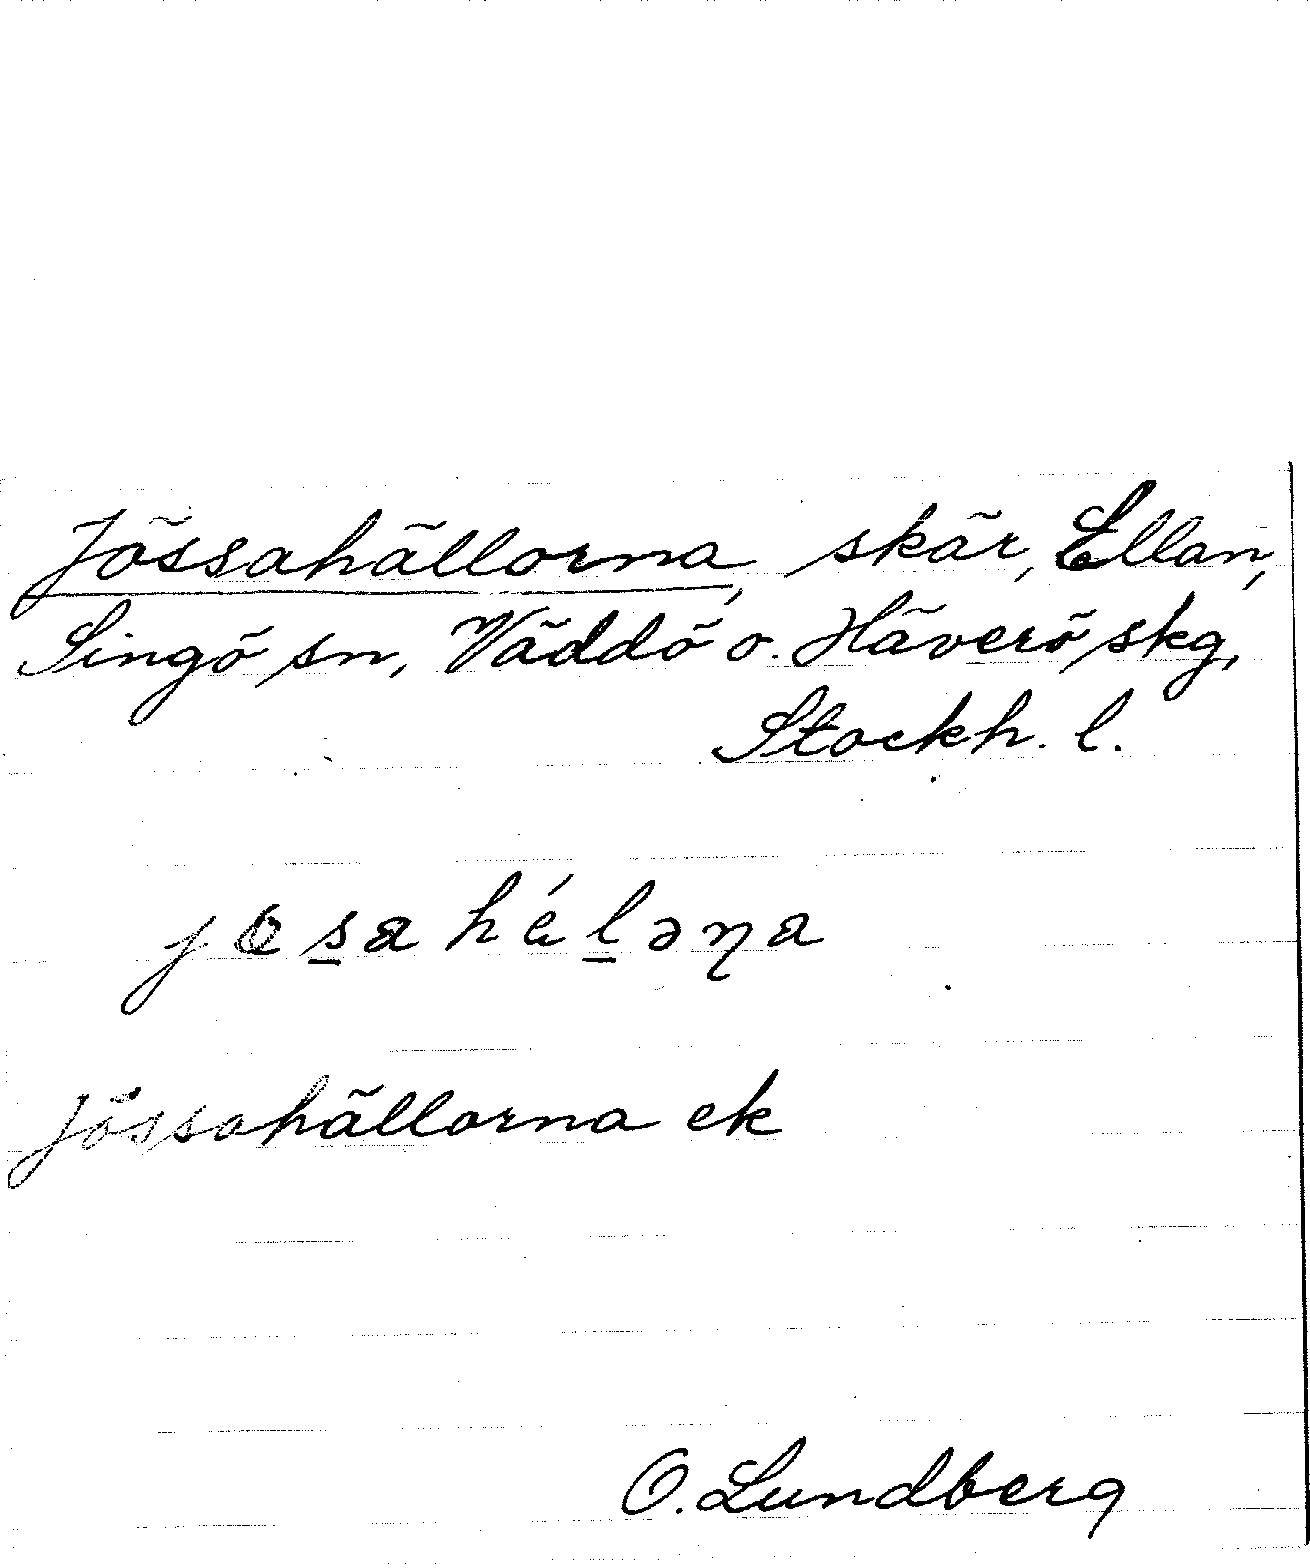 Jössahällorna, skär, Ellan,
Singö sn, Väddö o. Häverö skg,
Stockh. l.
jøs̲ahǽl̲əɳa
Jössahällorna ek
O. Lundberg